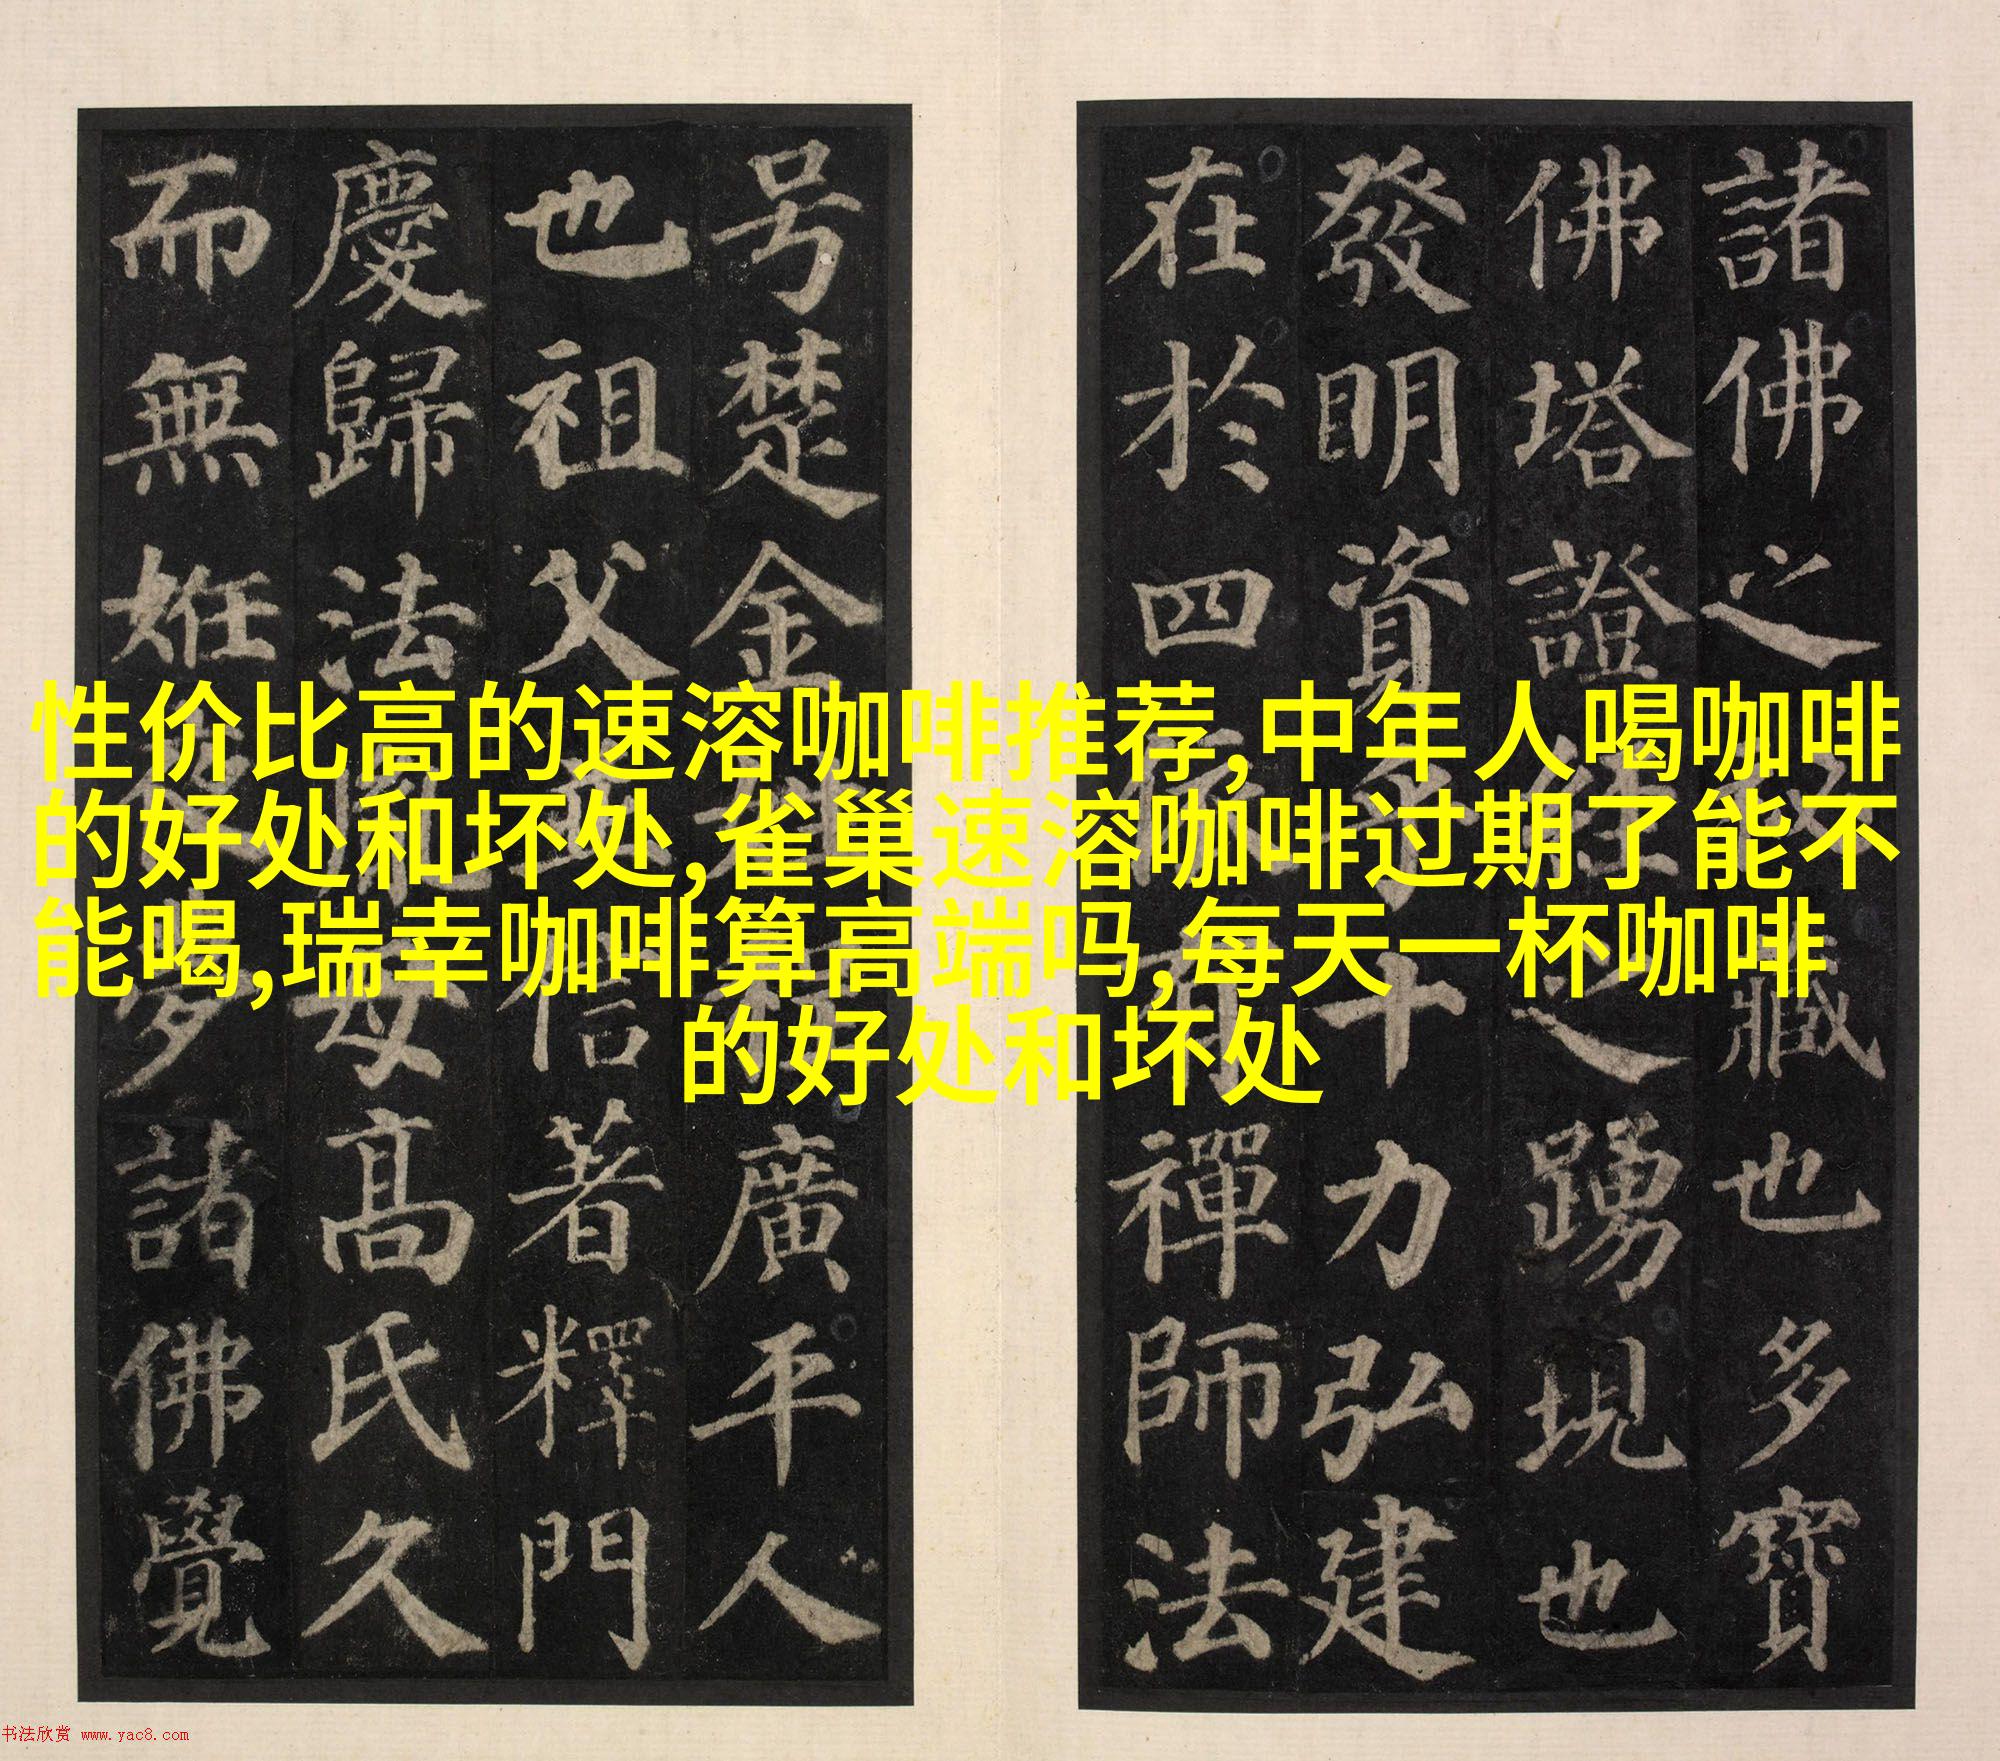 諸佛之秘藏也多寶
佛塔證經之踴現也
發明資乎十力弘建
在於四依有禪師法
号楚金姓程廣平人
也祖父並信著釋門
慶歸法胤母高氏久
而無姙夜夢諸佛覺
性价比高的速溶咖啡推荐,中年人喝咖啡
的好处和坏处,雀巢速溶咖啡过期了能不
能喝,瑞幸咖啡算高端吗,每天一杯咖啡
的好处和坏处
书法欣赏 www.yac8.com